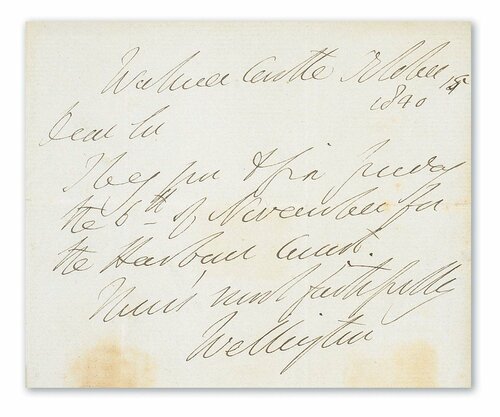 Walmer Castle October 15
1840
Dear Sir
I beg you to fix Friday
the 6th of November for
the Harbour Court.
Yours most faithfully
Wellington